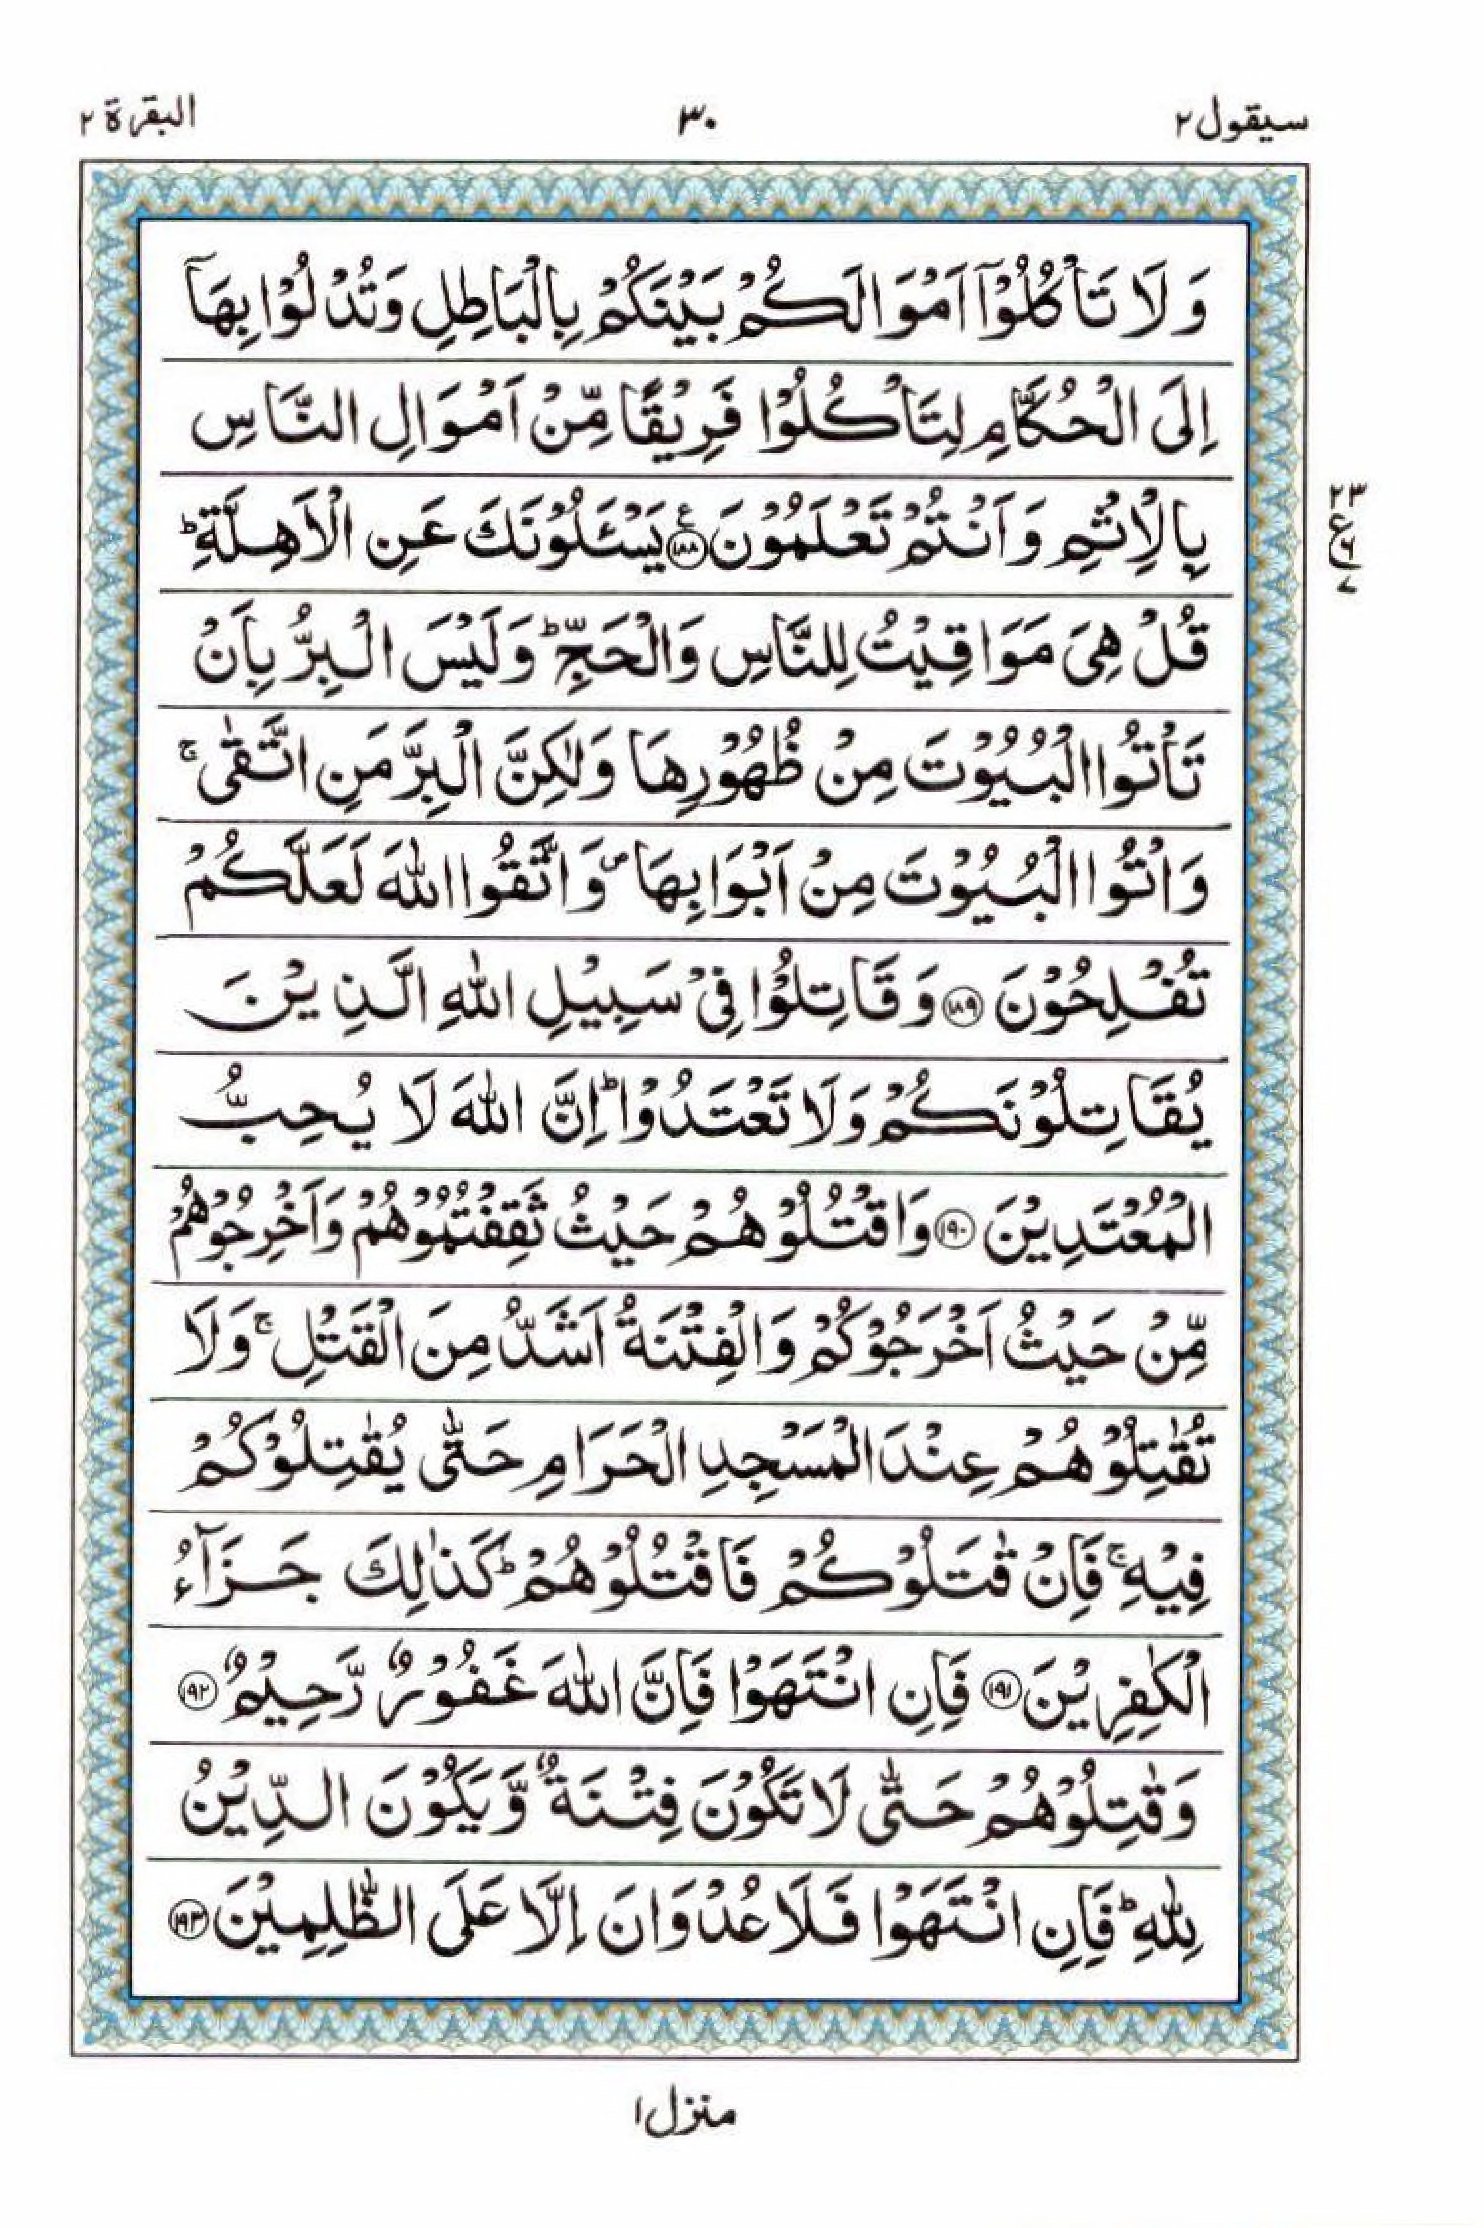 سیقول ۲
۳۰
البقرة ۲
وَلَا تَاْكُلُوْۤا اَمْوَالَكُمْ بَیْنَكُمْ بِالْبَاطِلِ وَتُدْلُوْا بِهَاۤ
اِلَی الْحُكَّامِ لِتَاْكُلُوْا فَرِیْقًا مِّنْ اَمْوَالِ النَّاسِ
بِالْاِثْمِ وَاَنْتُمْ تَعْلَمُوْنَ ؑ ۝۱۸۸ یَسْـَٔلُوْنَكَ عَنِ الْاَهِلَّةِ ؕ
۲۳
ع
۶
۷
قُلْ هِیَ مَوَاقِیْتُ لِلنَّاسِ وَالْحَجِّ ؕ وَلَیْسَ الْبِرُّ بِاَنْ
تَاْتُوا الْبُیُوْتَ مِنْ ظُهُوْرِهَا وَلٰكِنَّ الْبِرَّ مَنِ اتَّقٰی ۚ
وَاْتُوا الْبُیُوْتَ مِنْ اَبْوَابِهَا ۪ وَاتَّقُوا اللّٰهَ لَعَلَّكُمْ
تُفْلِحُوْنَ ۝۱۸۹ وَقَاتِلُوْا فِیْ سَبِیْلِ اللّٰهِ الَّذِیْنَ
یُقَاتِلُوْنَكُمْ وَلَا تَعْتَدُوْا ؕ اِنَّ اللّٰهَ لَا یُحِبُّ
الْمُعْتَدِیْنَ ۝۱۹۰ وَاقْتُلُوْهُمْ حَیْثُ ثَقِفْتُمُوْهُمْ وَاَخْرِجُوْهُمْ
مِّنْ حَیْثُ اَخْرَجُوْكُمْ وَالْفِتْنَةُ اَشَدُّ مِنَ الْقَتْلِ ۚ وَلَا
تُقٰتِلُوْهُمْ عِنْدَ الْمَسْجِدِ الْحَرَامِ حَتّٰی یُقٰتِلُوْكُمْ
فِیْهِ ۚ فَاِنْ قٰتَلُوْكُمْ فَاقْتُلُوْهُمْ ؕ كَذٰلِكَ جَزَآءُ
الْكٰفِرِیْنَ ۝۱۹۱ فَاِنِ انْتَهَوْا فَاِنَّ اللّٰهَ غَفُوْرٌ رَّحِیْمٌ ۝۱۹۲
وَقٰتِلُوْهُمْ حَتّٰی لَا تَكُوْنَ فِتْنَةٌ وَّیَكُوْنَ الدِّیْنُ
لِلّٰهِ ؕ فَاِنِ انْتَهَوْا فَلَا عُدْوَانَ اِلَّا عَلَی الظّٰلِمِیْنَ ۝۱۹۳
منزل ۱